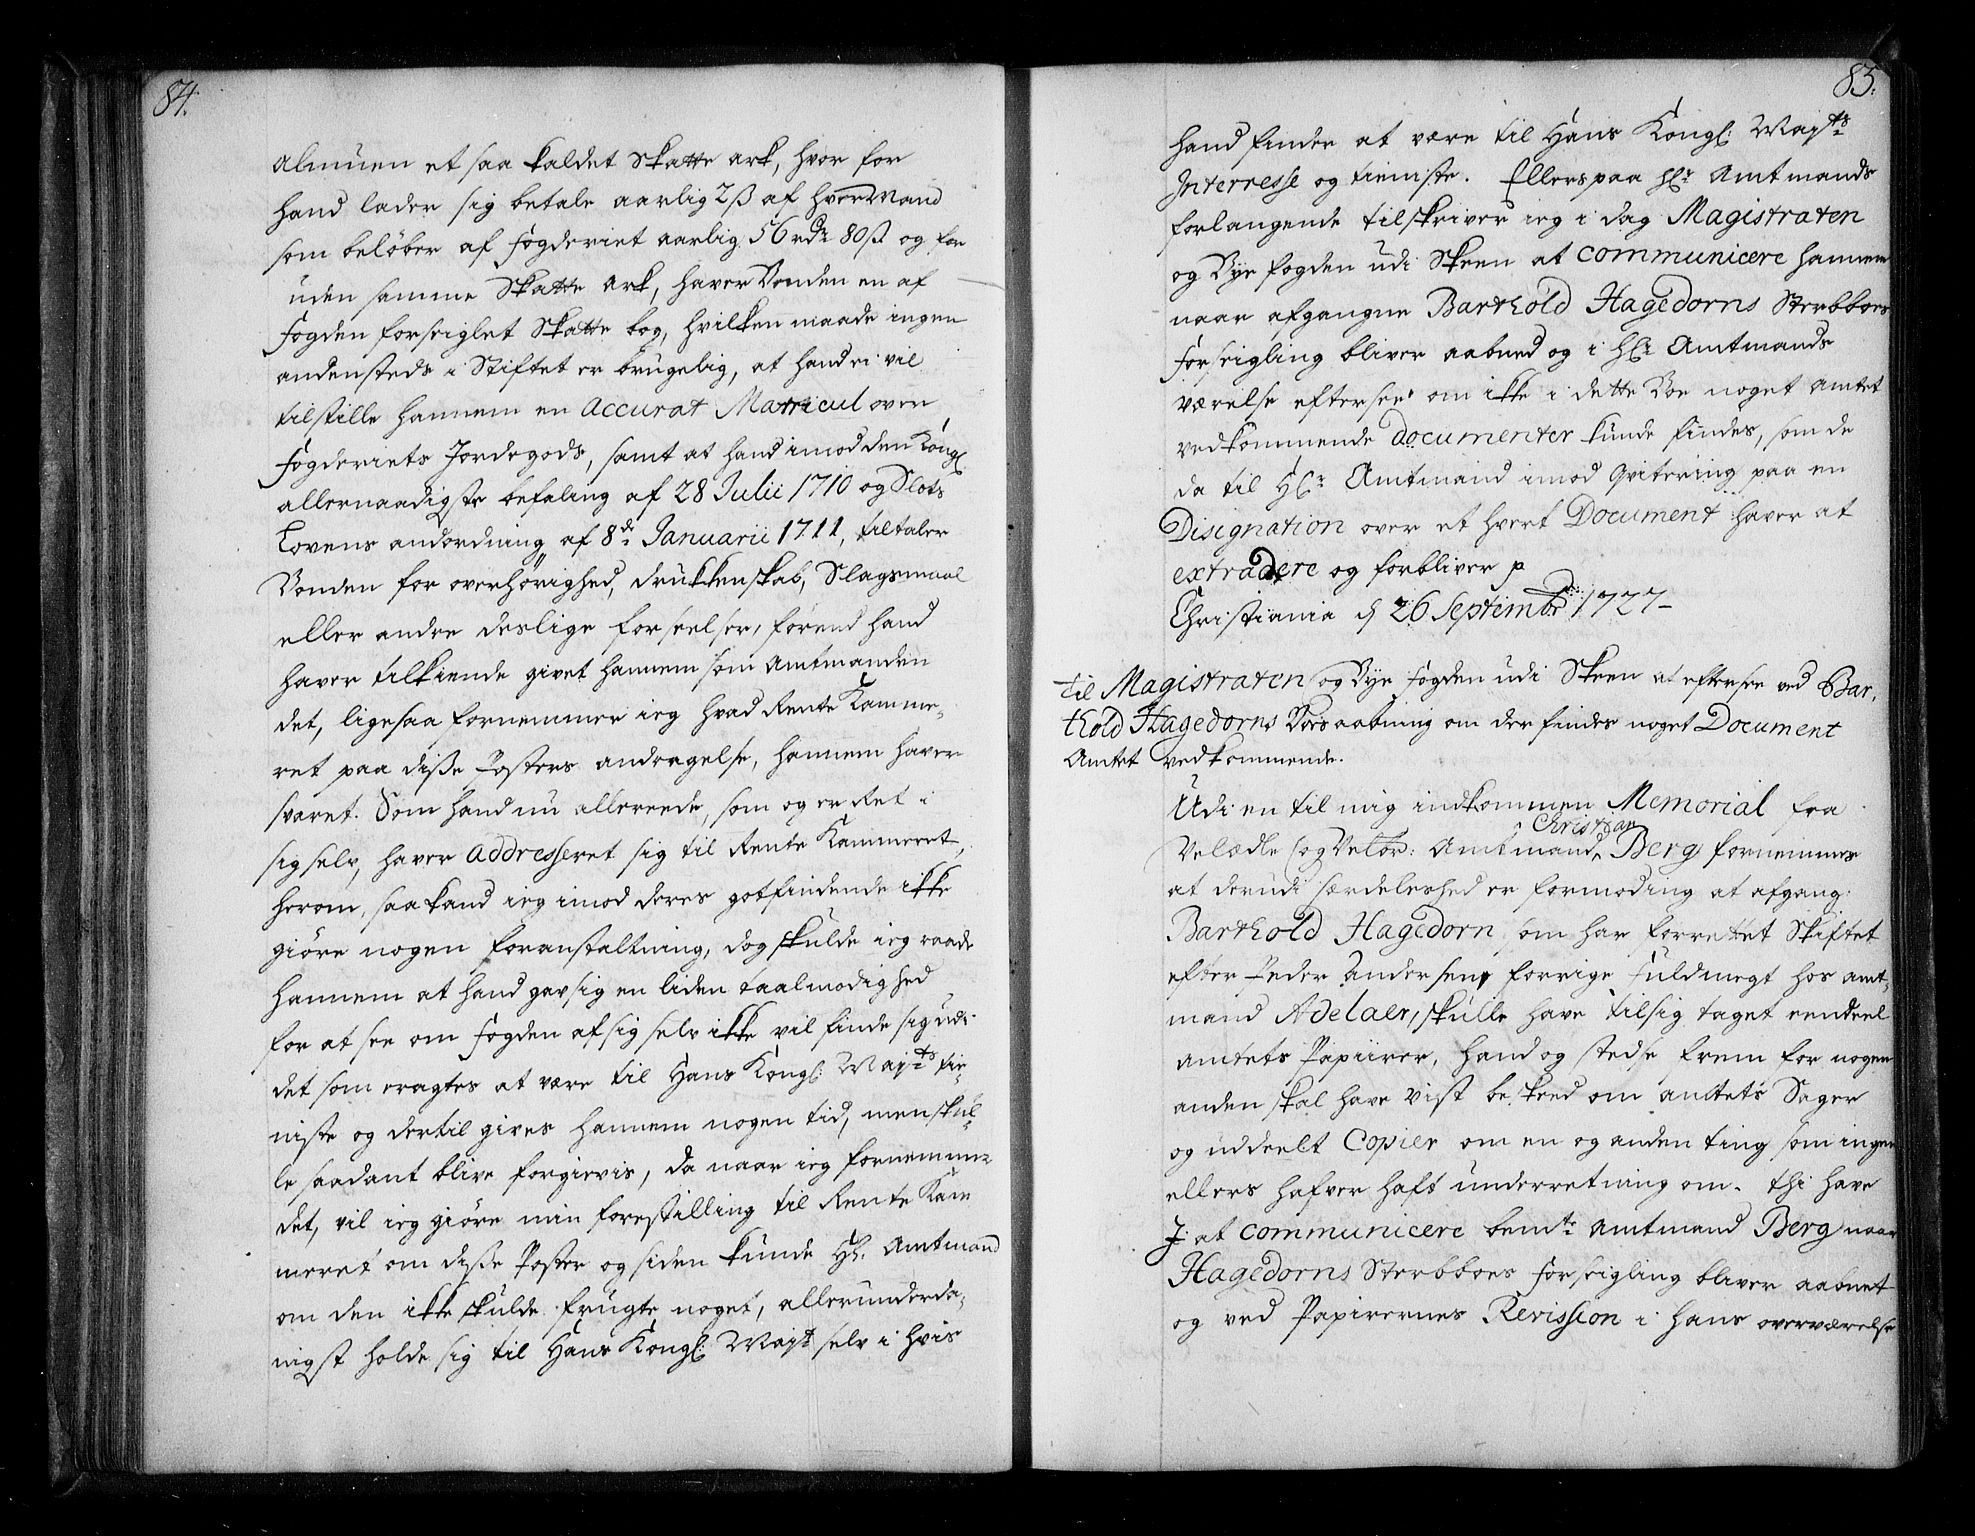 84.
Almuen et saa kaldet Skatte ark, hvor for
hand lader sig betale aarlig 2 ß af hver Mand
som beløber af fogderiet aarlig 56 rdr 80 ß og for
uden samme Skatte Ark, haver Bonden en af
Fogden forseiglet Skatte bog, hvilken maade ingen
andensteds i Stiftet er brugelig, at hand ei vil
tilstille hannem en Accurat Matricul over
Fogderiets Jordegods, samt at hand imod den Kongl:
allernaadigste befaling af 28 Julii 1710 og Slots
Lovens andordning af 8de Januarii 1711, tiltaler
Bonden for overhørighed, drukkenskab, Slagsmaal
eller andre deslige forseelser, førend hand
haver tilkiende givet hannem som Amtmanden
det, ligesaa fornemmer ieg hvad Rente Kamme-
ret paa diße Posters andragelse, hannem haver
svaret. Som hand nu allereede, som og er Ret i
sig selv, haver Addresseret sig til Rente Kammeret,
herom, saa kand ieg imod deres gotfindende ikke
giøre nogen foranstaltning, dog skulde ieg raade
hannem at hand gav sig en liden taalmodighed
for at see om Fogden af sig selv ikke vil finde sig udi
det som eragtes at være til Hans Kongl: Majts tie-
niste og dertil gives hannem nogen tid, men skul-
le saadant blive forgievis, da naar ieg fornemmer
det, vil ieg giøre min forestilling til Rente Kam
meret om diße Poster og siden kunde Hr. Amtmand
om den ikke skulde frugte noget, allerunderda-
nigst holde sig til Hans Kongl: Majt selv i hvis
85.
hand finder at være til Hans Kongl: Majts
Interresse og tieniste. Ellers paa Hr Amtmands
forlangende tilskriver ieg i dag Magistraten
og Bye fogden udi Skeen at communicere hannem
naar afgangne Barthold Hagedorns Sterbboes
forseigling bliver aabned og i Hr Amtmands
værelse eftersee om ikke i dette Boe noget Amtet
vedkommende documenter kunde findes, som de
da til Hr Amtmand imod qvitering paa en
Disignation over et hvert Document haver at
extradere og forbliver p
Christiania d 26 Septembr: 1727-
Til Magistraten og Bye Fogden udi Skeen at eftersee ved Bar-
thold Hagedorns Boes aabning om der findes noget Document
Amtet vedkommende.
Udi en til mig indkommen Memorial fra
Velædle (og Velbr: Amtmand Christian Berg fornemmes
at derudi særdeleshed er formoding at afgang:
Barthold Hagedorn som har forrettet Skiftet
efter Peder Andersen, forrige fuldmegt hos Amt-
mand Adelaer, skulle have til sig taget eendeel
Amtets Papiirer, hand og stedse frem for nogen
anden skal have vist beskeed om Amtets Sager
og uddeelt Copier om en og anden ting som ingen
ellers hafver haft underretning om. thi have
I at communicere bemte Amtmand Berg naar
Hagedorns Sterbboes forseigling bliver aabnet
og ved Papirernes Revission i hans overværelse